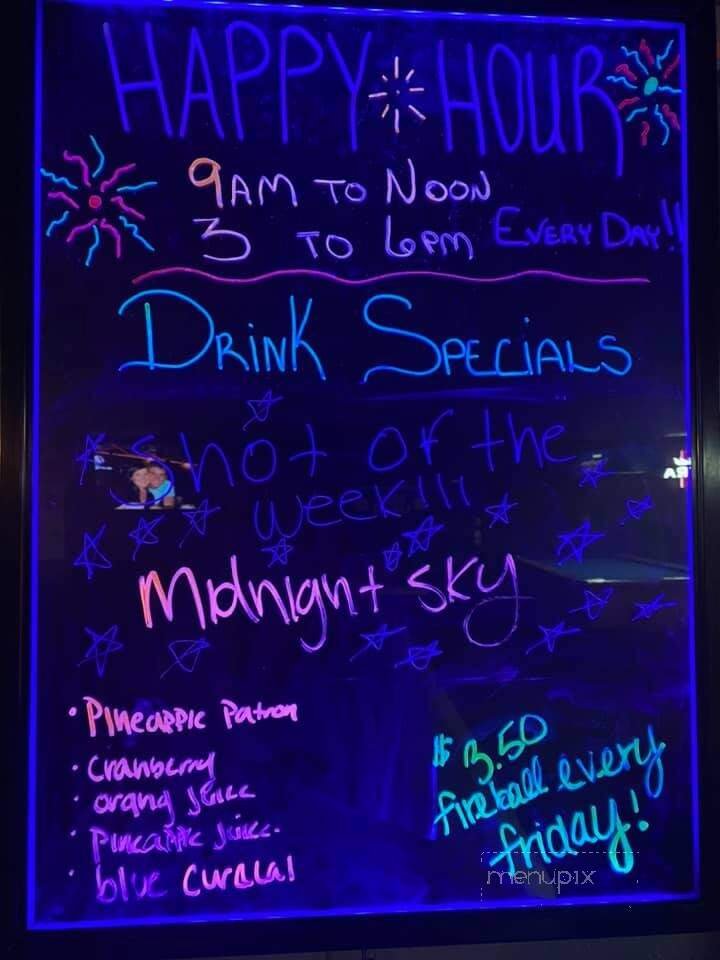 HAPPY HOUR
9AM TO NOON
3 TO 6PM EVERY DAY!!
DRINK SPECIALS
Shot of the
week!!!
Midnight sky
• Pineapple Patron
• Cranberry
• orang juice
• Pineapple juice.
• blue Curacal
$3.50
fireball every
friday!
menupix